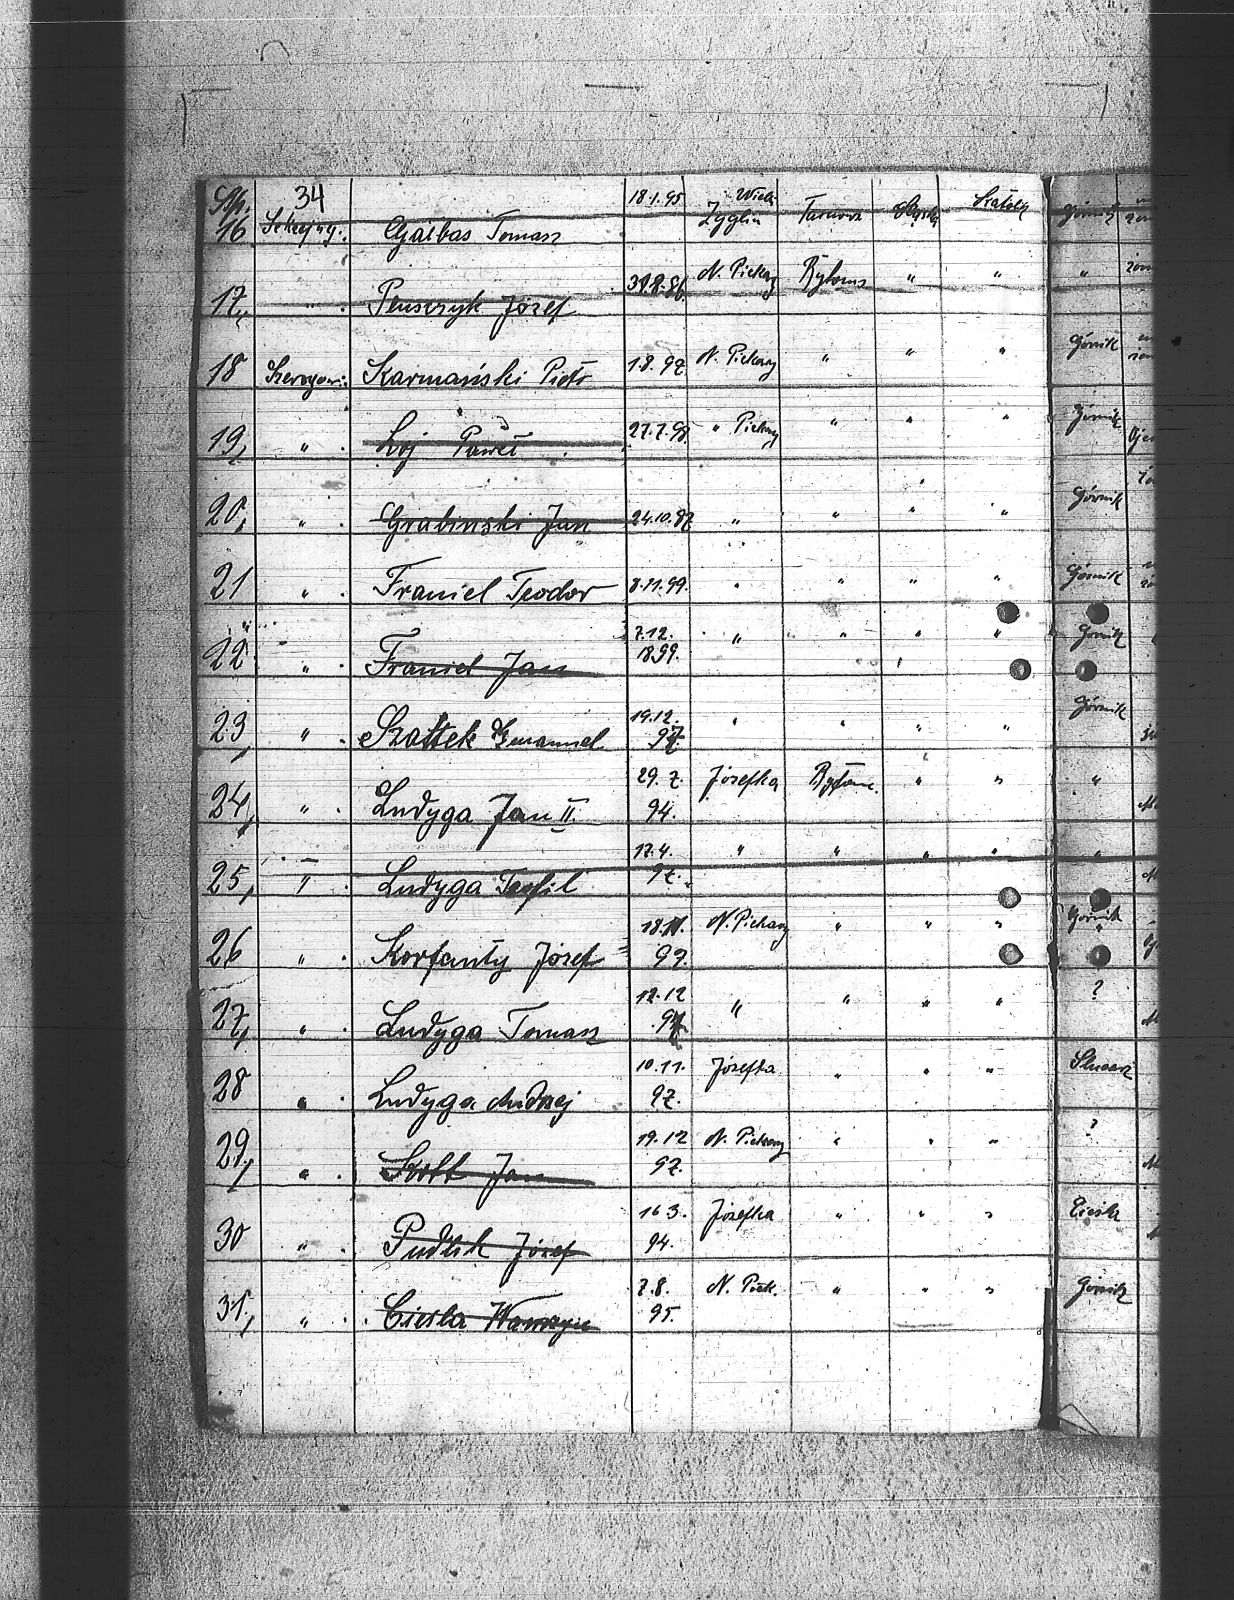 34
16 Gaibas Tomasz 18.1.95 Wielk. Zyglin Górnik
17, " Pluszczyk Józef 31.8.86 N. Piekary Bytom " " "
18 Szeregowi: Karmański Piotr 1.8.97 N. Piekary " " " Górnik
19, " Loj Paweł 27.7.98 " Piekary " " " Górnik
20, " Grabinski Jan 24.10.87 " " " " Górnik
21 " Franiel Teodor 8.11.99. " " " " Górnik
22 " Franiel Jan 7.12. 1899. " " " " Górnik
23, " Szołtek Emanuel 19.12. 97. " " " " Górnik
24, " Ludyga Jan II. 29.7. 94. Józefka Bytom. " " "
25, " Ludyga Teofil 17.4. 97. " " " " "
26 " Korfanty Józef 18.11. 99. N. Piekary " " " Górnik
27, " Ludyga Tomasz 12.12 97. " " " " ?
28 " Ludyga Andrzej 10.11. 97. Józefka " " "
29, " Jan 19.12 97. N. Piekary " " " ?
30 " Pudlik Józef 16 3. 94. Józefka " " "
31, " Ciesla Wawrzyn 7.8. 95. N. Piek. " " " Górnik